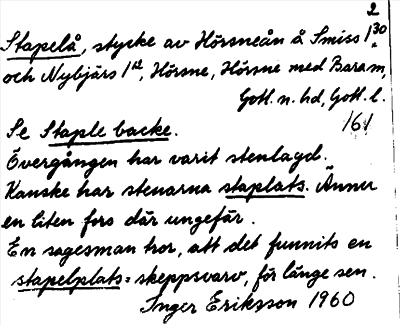 2
Stapelå, stycke av Hörsneån å Smiss 1³⁰
och Nybjärs 1st, Hörsne, Hörsne med Bara m,
Gotl. n. hd, Gotl. l.
Se Staple backe. 161
Övergången har varit stenlagd.
Kanske har stenarna staplats. Ännu
en liten fors där ungefär.
En sagesman tror, att det funnits en
stapelplats = skeppsvarv, för länge sen.
Inger Eriksson 1960